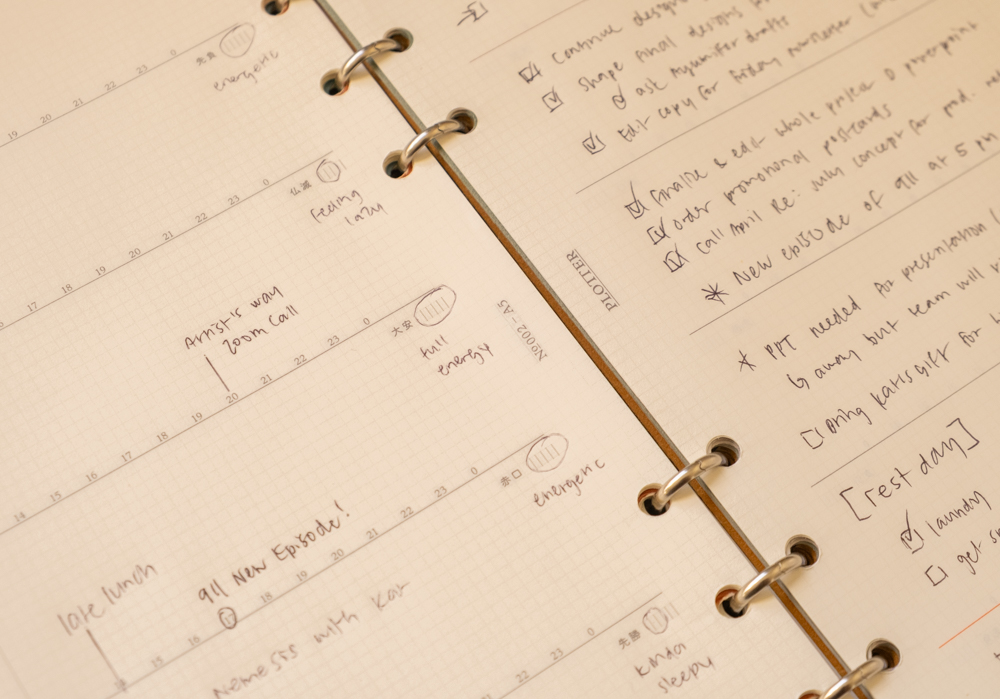 19 20 21 22 23 0
先負
energetic
17 18 19 20 21 22 23 0
仏滅
Feeling
lazy
Artist's way
zoom call
14 15 16 17 18 19 20 21 22 23 0
大安
full
energy
911 New Episode!
late lunch
15 16 17 18 19 20 21 22 23 0
赤口
energetic
Nemesis with Kat
22 23 0
先勝
kinda
sleepy
No002-A5
PLOTTER
Continue designs
shape final designs
ask drafts
Edit copy for Friday newsletter
finalize & edit whole powerpoint
order promotional postcards
call April Re: July concept for pod.
* New episode of 911 at 5 pm
* PPT needed for presentation
away but team will
bring Kat's gift for
[rest day]
laundry
get